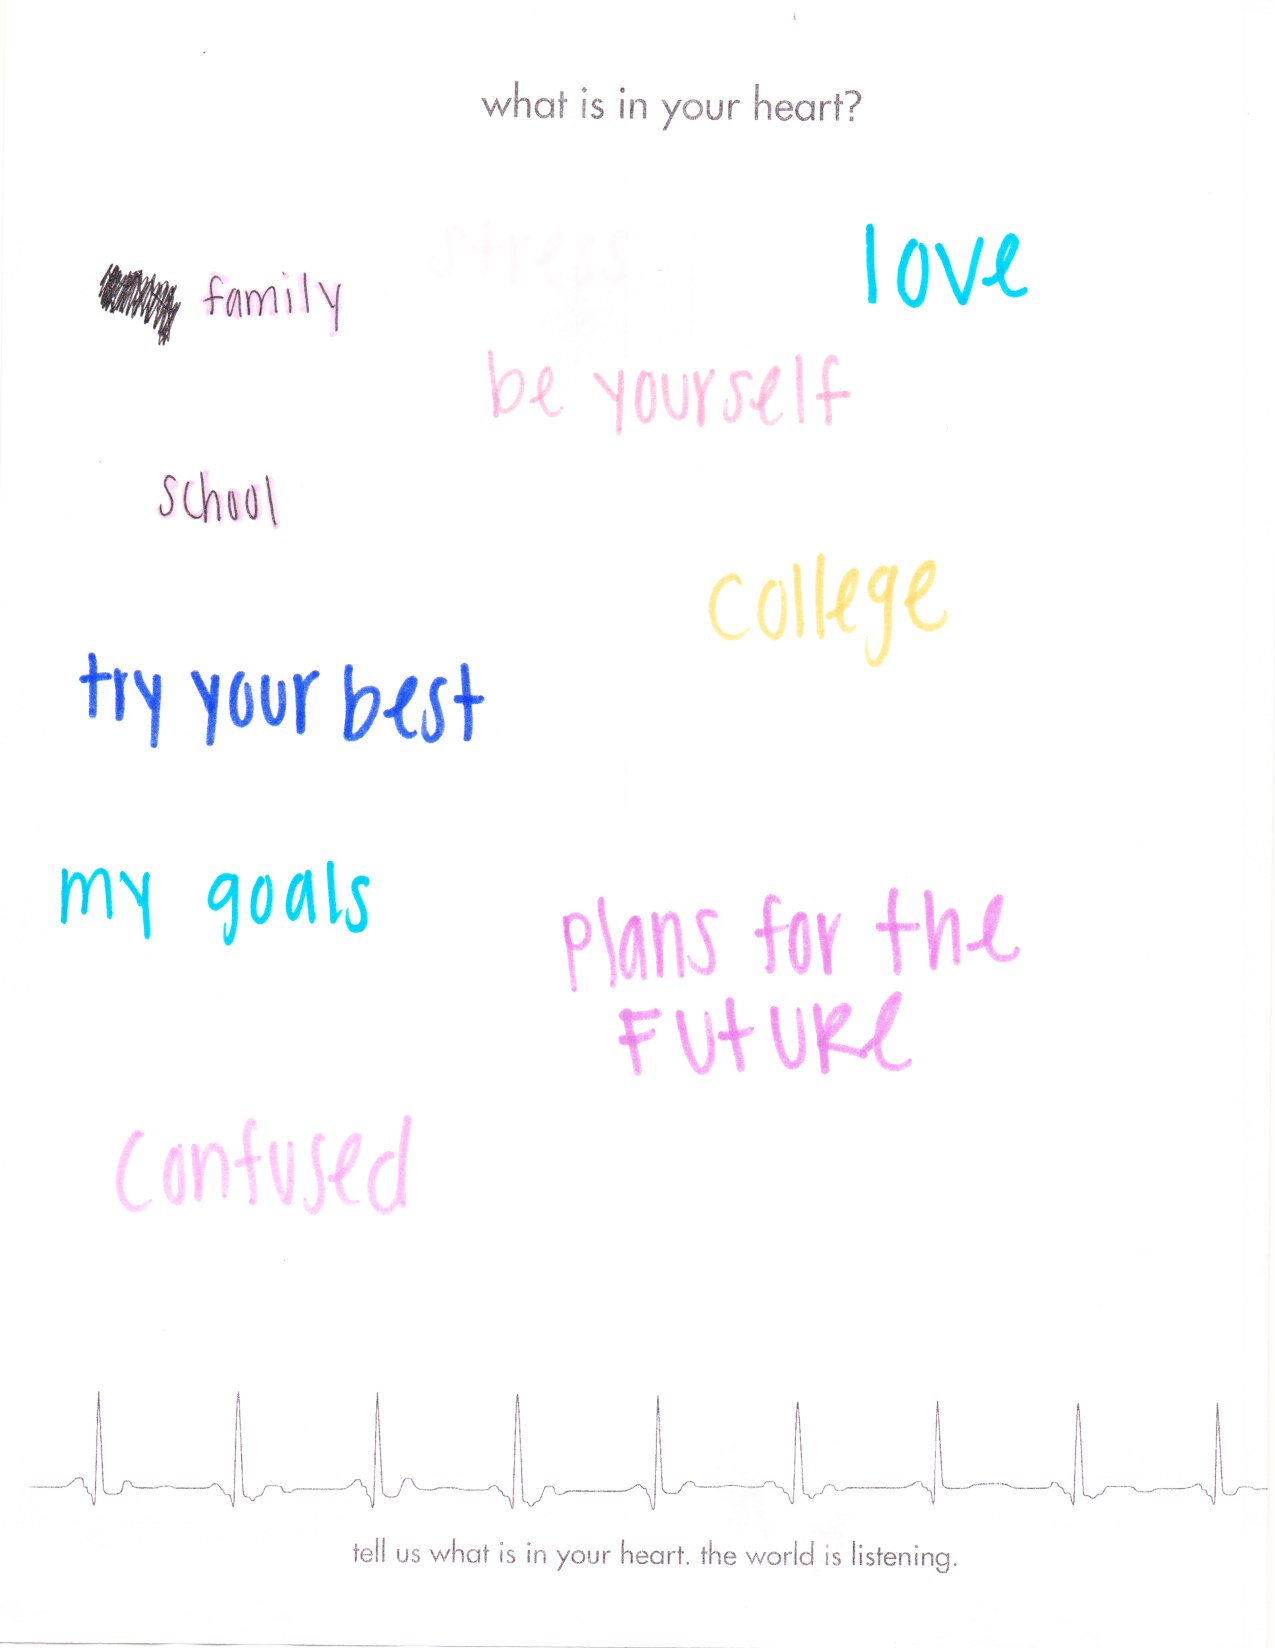 what is in your heart?
stress
love
family
be yourself
school
college
try your best
my goals
plans for the
FUTURE
confused
tell us what is in your heart. the world is listening.